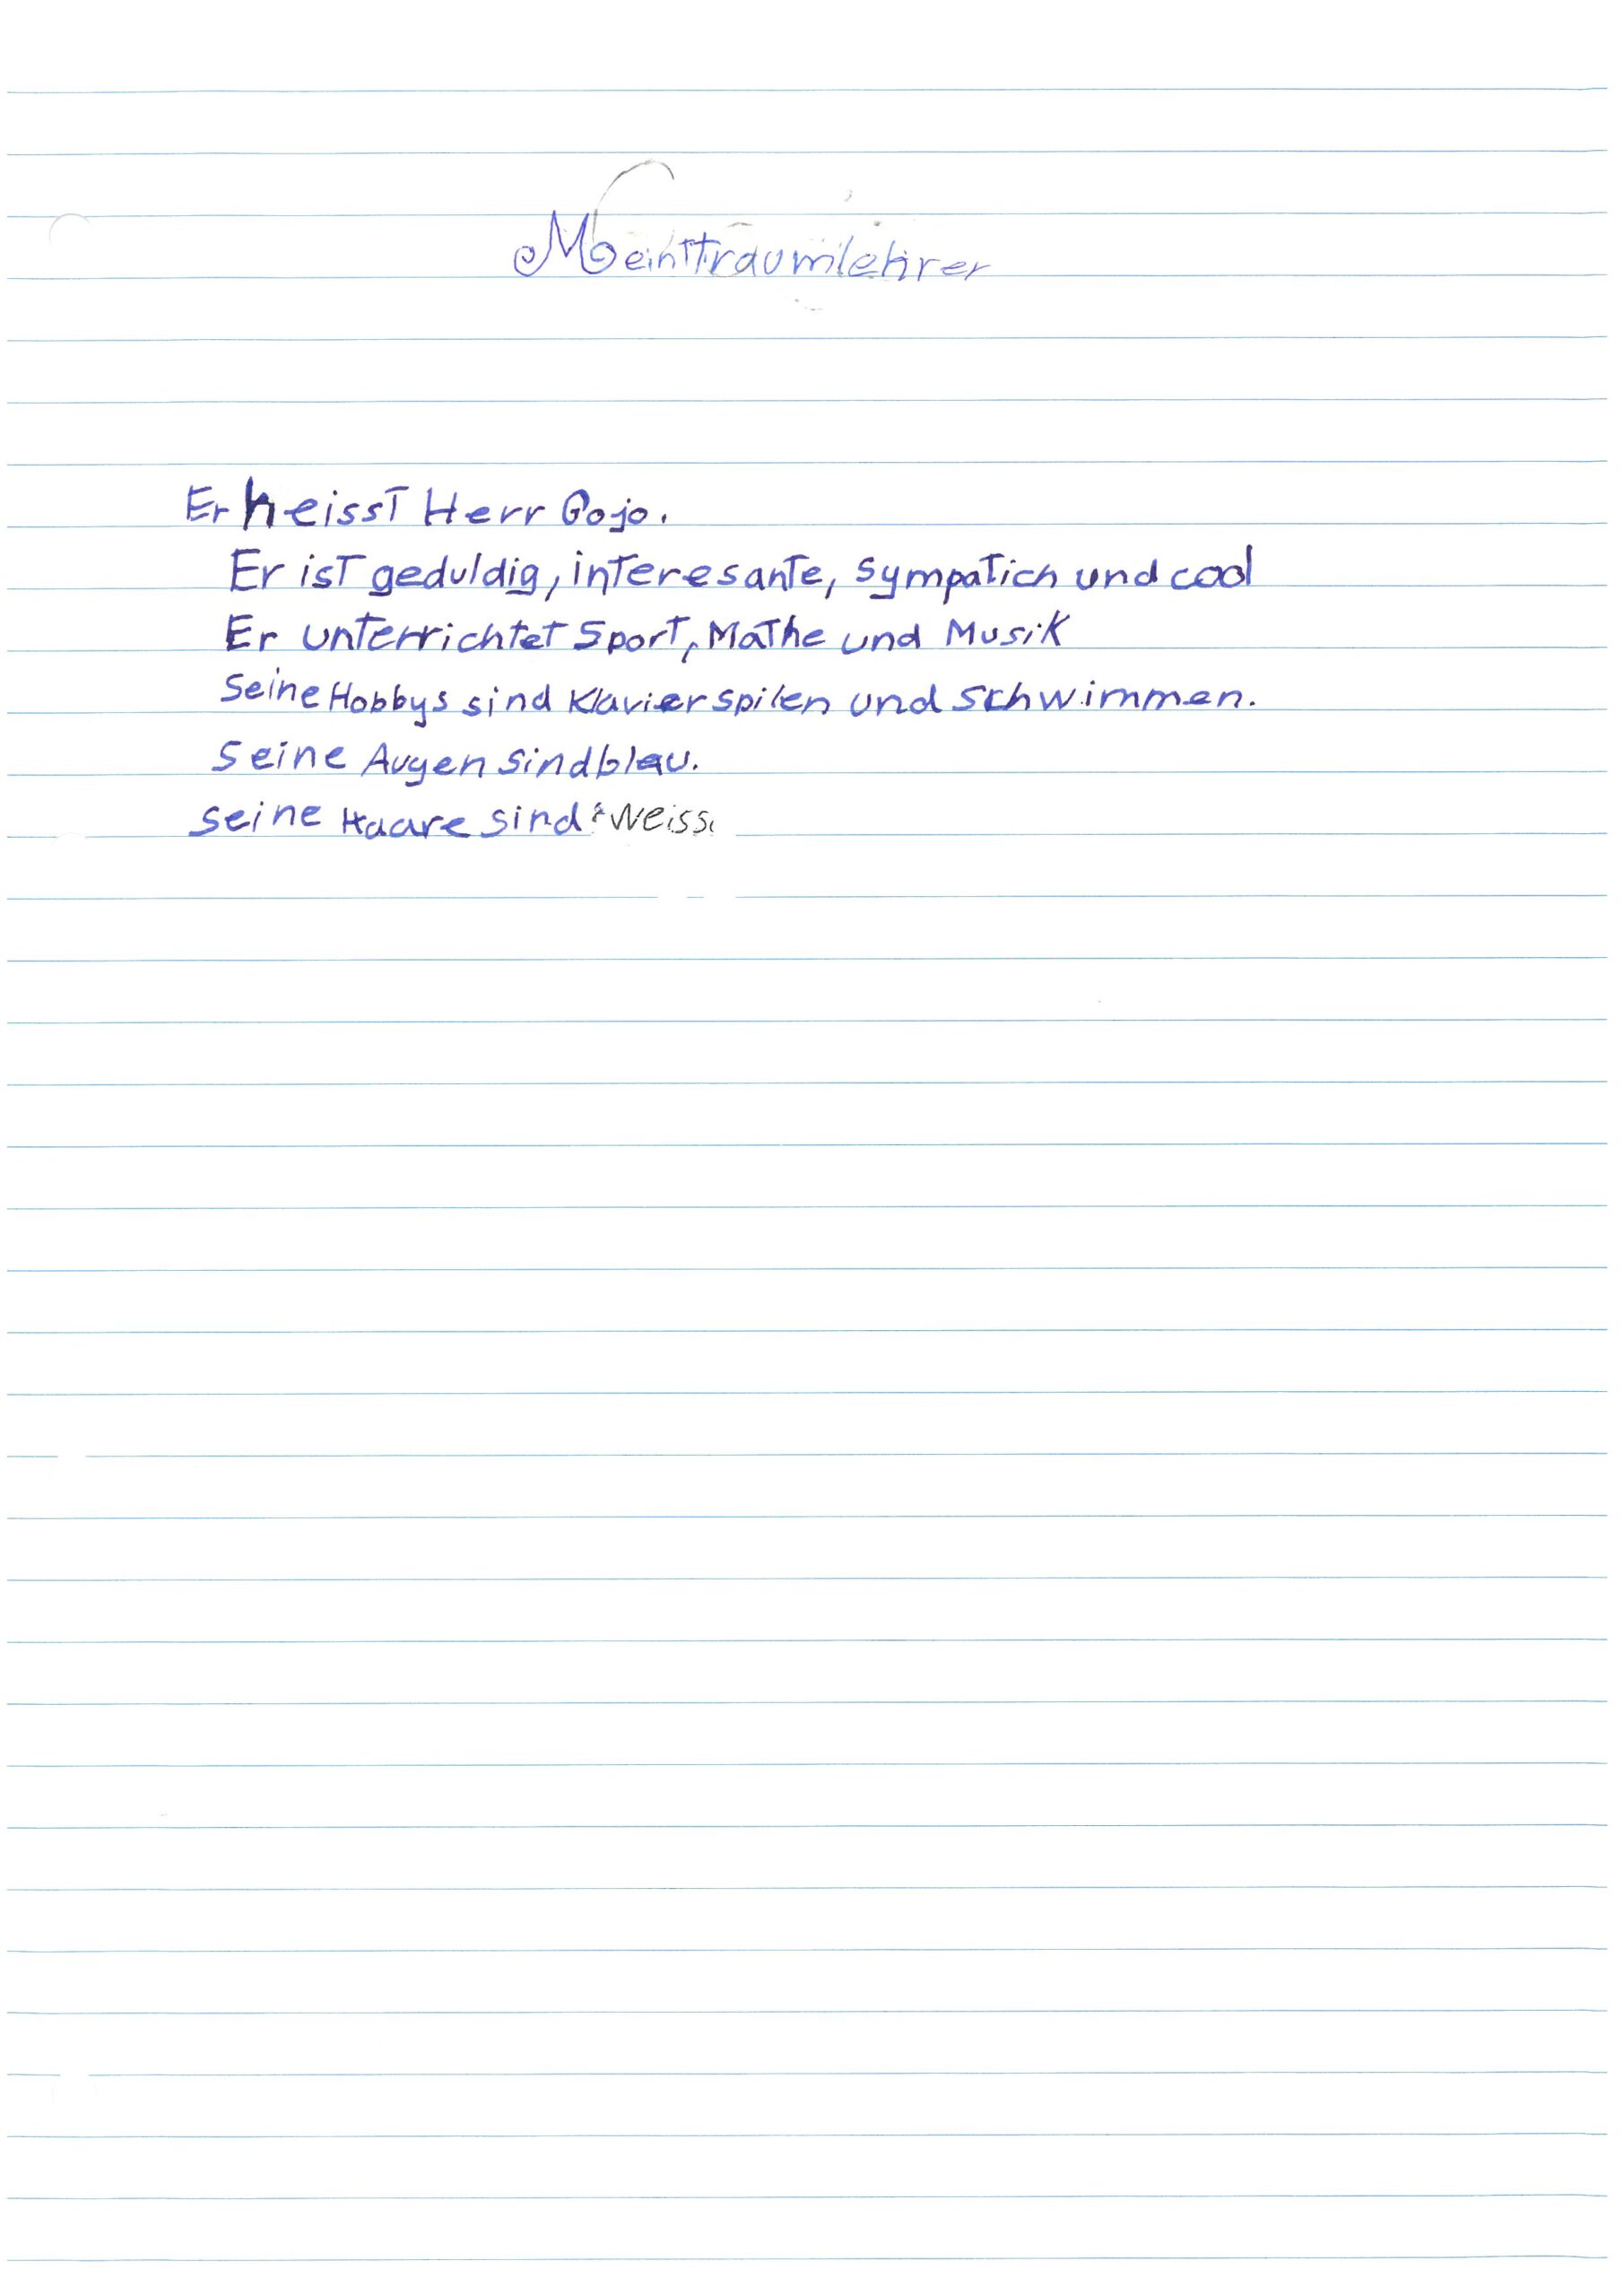 Mein Traumlehrer
Er heisst Herr Gojo.
Er ist geduldig, interesante, sympatich und cool
Er unterrichtet Sport, Mathe und Musik
Seine Hobbys sind Klavier spilen und schwimmen.
Seine Augen sind blau.
Seine Haare sind weiss.